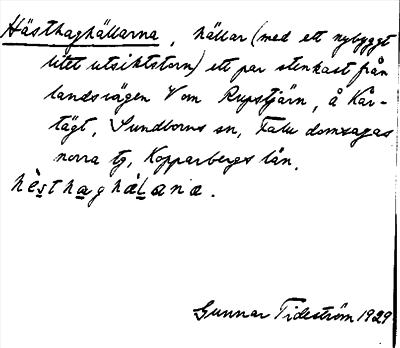 Hästhaghällarna, hällar (med ett nybyggt
litet utsiktstorn) ett par stenkast från
landsvägen V om Rupstjärn, å Kår-
tägt, Sundborns sn, Falu domsagas
norra tg, Kopparbergs län.
hèsthaghälana.
Gunnar Tideström 1929